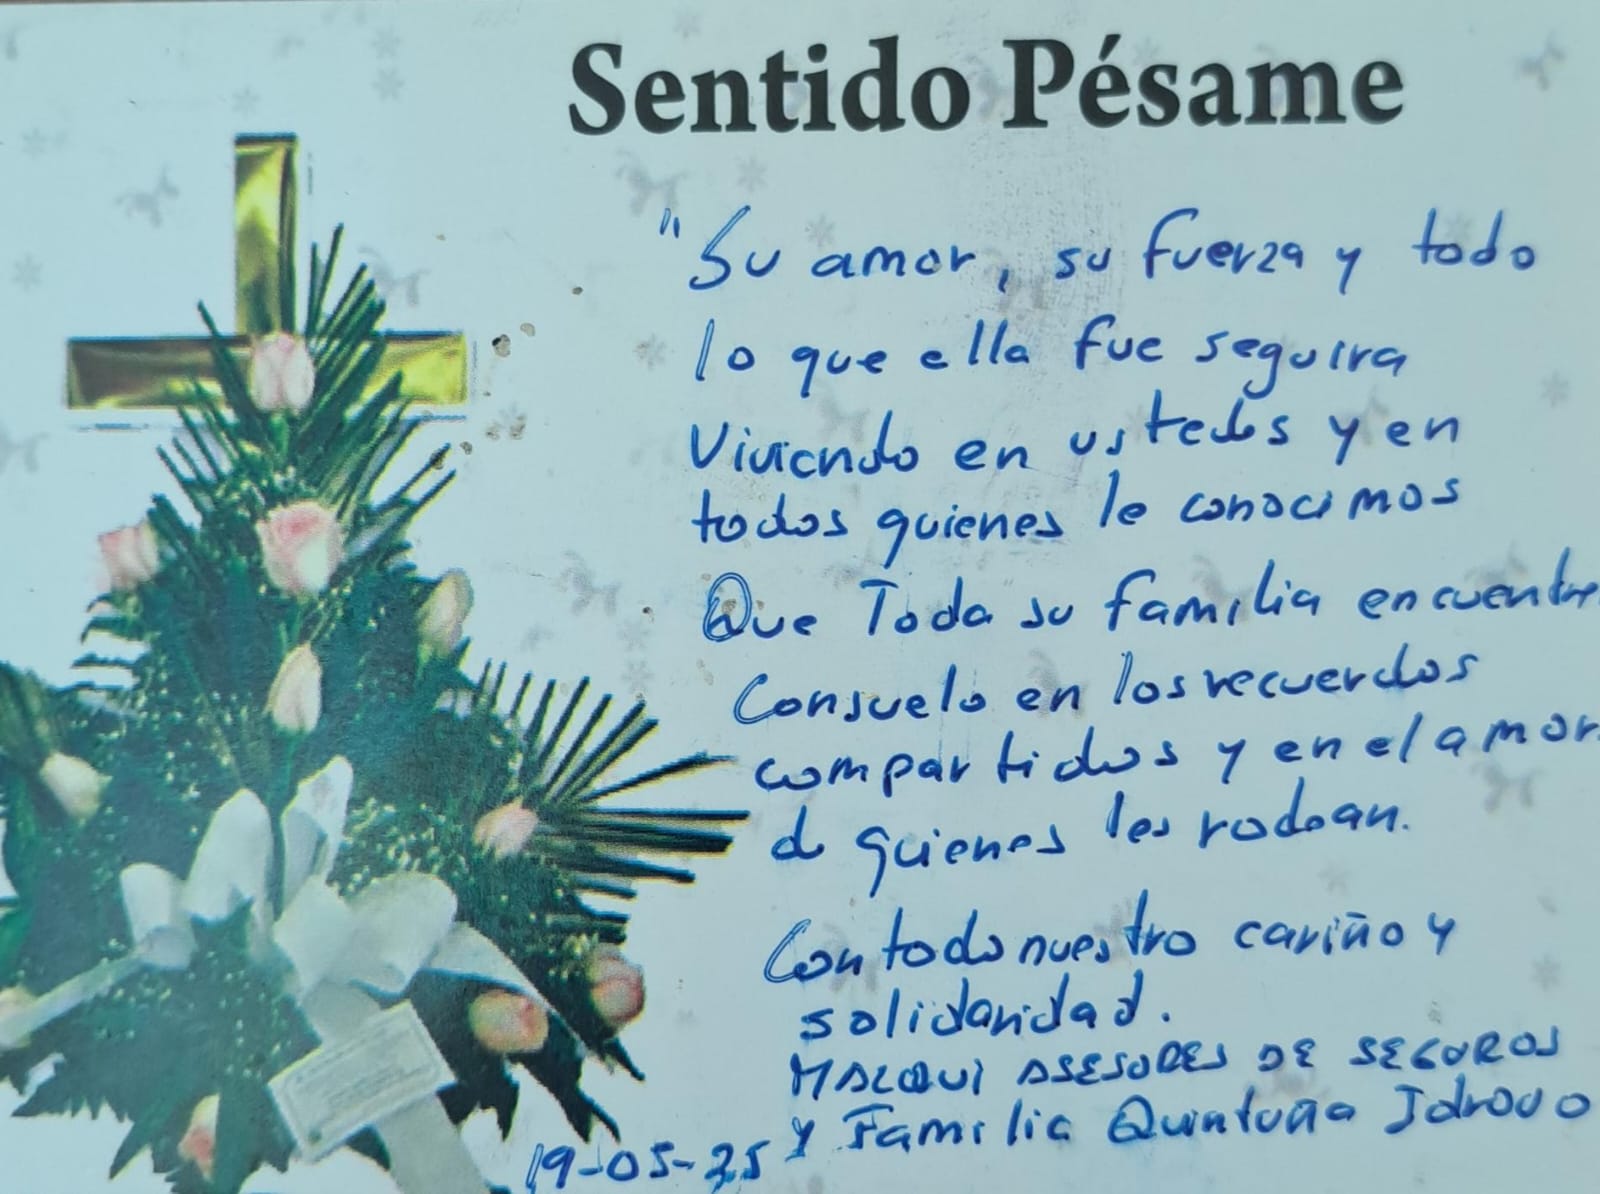 Sentido Pésame
"Su amor, su fuerza y todo
lo que ella fue seguira
Viviendo en ustedes y en
todos quienes le conocimos
Que Toda su familia encuentre
Consuelo en los recuerdos
compartidos y en el amor
de quienes les rodean.
Con todo nuestro cariño y
solidaridad.
MALQUI ASESORES DE SEGUROS
y Familia Quintuña Idrovo
19-05-25